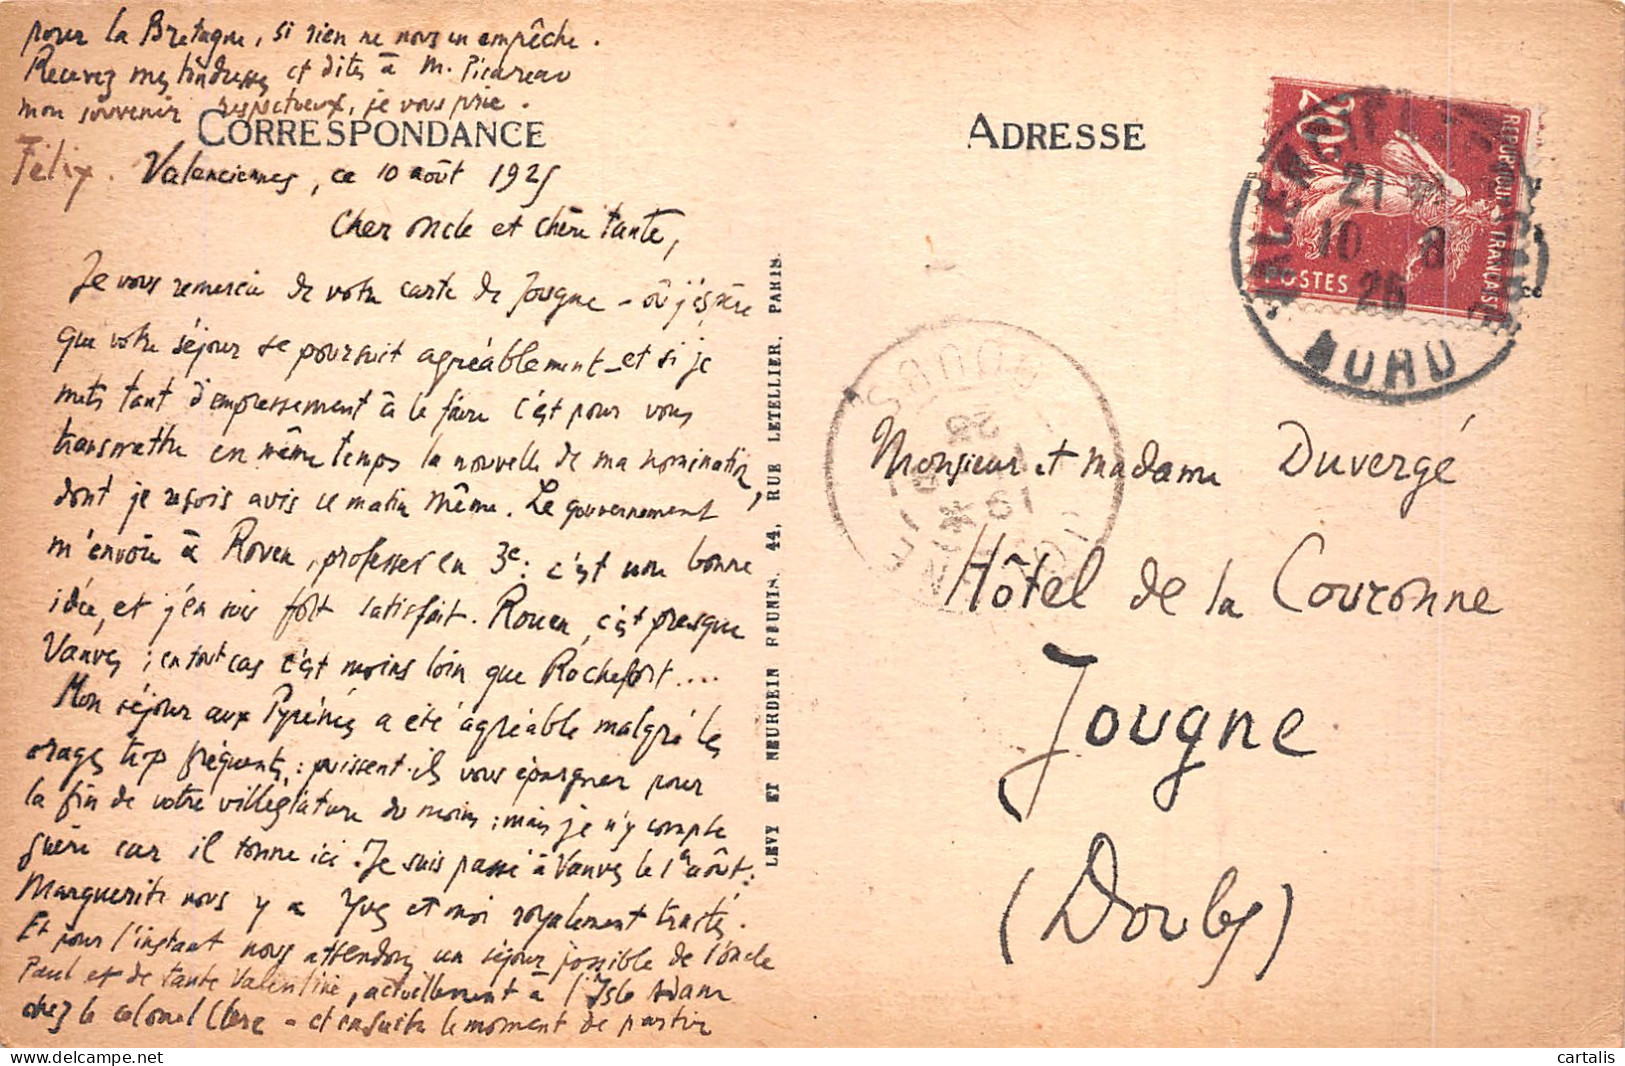 CORRESPONDANCE
Valenciennes, ce 10 août 1925
Cher oncle et chère tante,
Je vous remercie de votre carte de Jougne – où j'espère
que votre séjour se poursuit agréablement – et si je
mets tant d'empressement à le faire c'est pour vous
transmettre en même temps la nouvelle de ma nomination,
dont je reçois avis ce matin même. Le gouvernement
m'envoie à Rouen, professer en 3e : c'est une bonne
idée, et j'en suis fort satisfait. Rouen, c'est presque
Vanves ; en tout cas c'est moins loin que Rochefort ....
Mon séjour aux Pyrénées a été agréable malgré les
orages trop fréquents, : puissent-ils vous épargner pour
la fin de votre villégiature du moins ; mais je n'y compte
guère car il tonne ici. Je suis passé à Vanves le 1er août :
Marguerite nous y a Yves et moi royalement traités.
Et pour l'instant nous attendons un séjour possible de l'oncle
Paul et de tante Valentine, actuellement à l'Isle Adam
chez le colonel Clerc – et ensuite le moment de partir
pour la Bretagne, si rien ne nous en empêche.
Recevez mes tendresses et dites à M. Picareau
mon souvenir respectueux, je vous prie.
Félix.
LEVY ET NEURDEIN RÉUNIS. 44, RUE LETELLIER, PARIS
ADRESSE
REPUBLIQUE FRANÇAISE
20c
POSTES
VALENCIENNES
21
10 8
25
NORD
JOUGNE
19
25
DOUBS
Monsieur et madame Duvergé
Hôtel de la Couronne
Jougne
(Doubs)
cartalis